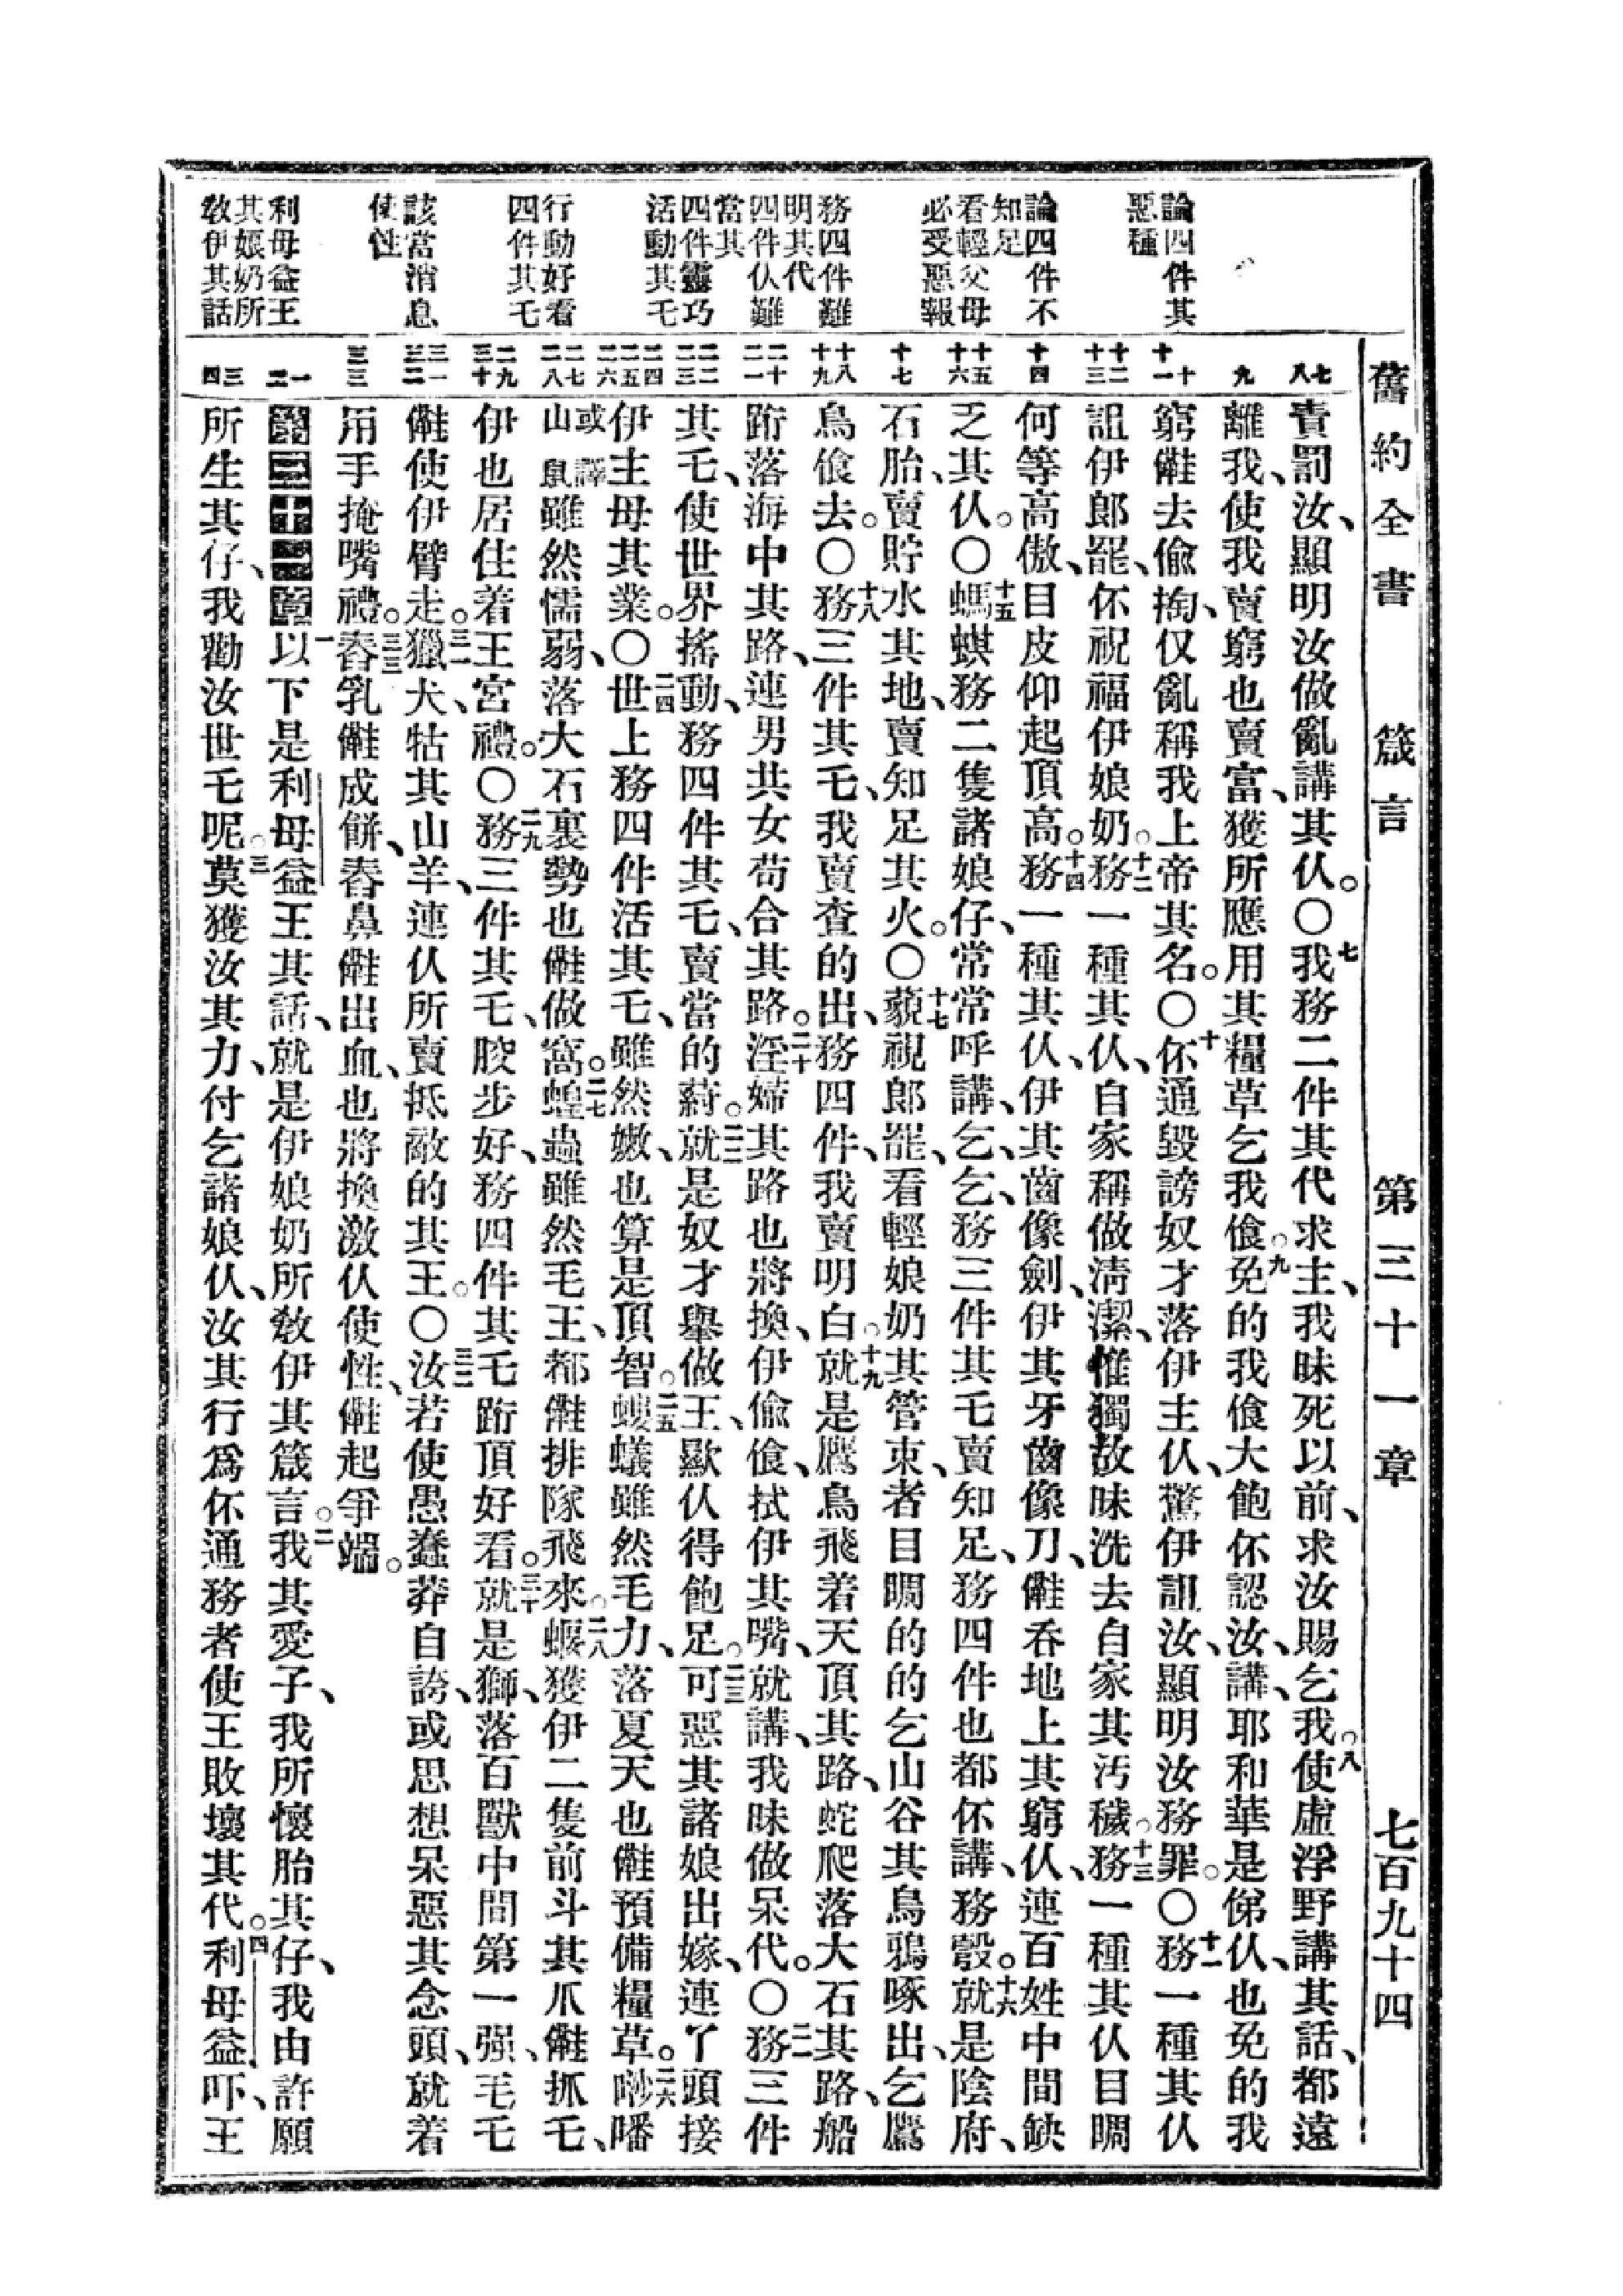 舊約全書 箴言 第三十一章 七百九十四
論四件其
惡種
論四件不
知足
看輕父母
必受惡報
務四件難
明其代
四件仈難
當其
四件靈巧
活動其乇
行動好看
四件其乇
該當消息
使性
利母益王
其娘奶所
敎伊其話
七 八
九
十 十一
十二 十三
十四
十五 十六
十七
十八 十九
二十 二一
二二 二三
二四 二五 二六
二七 二八
二九 三十
三一 三二
三三
一 二
三 四
責罰汝、顯明汝做亂講其仈。〇七我務二件其代求主、我昧死以前、求汝賜乞我。八使虛浮野講其話、都遠
離我、使我賣窮也賣富、獲所應用其糧草乞我飡。九免的我飡大飽伓認汝、講、耶和華是俤仈、也免的我
窮去偷掏、仅亂稱我上帝其名。〇十伓通毀謗奴才落伊主仈、驚伊詛汝、顯明汝務罪。〇十一務一種其仈
詛伊郎罷、伓祝福伊娘奶。十二務一種其仈、自家稱做淸潔、惟獨故昧洗去自家其汚穢。十三務一種其仈目睭
何等高傲、目皮仰起頂高。十四務一種其仈、伊其齒像劍、伊其牙齒像刀、吞地上其窮仈、連百姓中間缺
乏其仈。〇十五螞蜞務二隻諸娘仔、常常呼講、乞、乞、務三件其乇賣知足、務四件也都伓講、務彀。十六就是陰府、
石胎、賣貯水其地、賣知足其火。〇十七藐視郎罷、看輕娘奶其管束者目睭的的乞山谷其鳥鴉啄出、乞鷹
鳥飡去。〇十八務三件其乇、我賣查的出、務四件、我賣明白。十九就是鷹鳥飛着天頂其路、蛇爬落大石其路、船
跡落海中其路、連男共女苟合其路。二十淫婦其路也將換、伊偷飡、拭伊其嘴、就講、我昧做呆代。〇二一務三件
其乇、使世界搖動、務四件其乇、賣當的。二二就是奴才舉做王、歇仈得飽足。二三可惡其諸娘出嫁、連了頭接
伊主母其業。〇二四世上務四件活其乇、雖然嫩、也算是頂智。二五蟻雖然毛力、落夏天也預備糧草。二六
或譯山鼠雖然懦弱、落大石裏勢也做窩。二七蝗蟲雖然毛王、都排隊飛來。二八獲伊二隻前斗其爪抓乇、
伊也居住着王宮禮。〇二九務三件其乇、骹步好、務四件其乇跡頂好看。三十就是獅、落百獸中間第一强、毛乇
使伊臂走。三一獵犬、牯其山羊、連仈所賣抵敵的其王。〇三二汝若使愚蠢莽自誇、或思想呆惡其念頭、就着
用手掩嘴禮。三三舂乳成餅、舂鼻出血、也將換激仈使性、起爭端。
第三十一章 一以下是利母益王其話、就是伊娘奶所敎伊其箴言。二我其愛子、我所懷胎其仔、我由許願
所生其仔、我勸汝世乇呢。三莫獲汝其力、付乞諸娘仈、汝其行爲伓通務者使王敗壞其代。四利母益吓、王